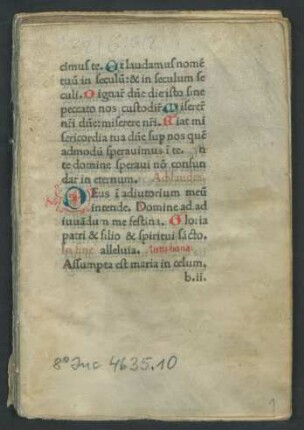 cimus te. Et laudamus nomē
tuū in seculū: & in seculum se
culi. Dignare dn̄e die isto sine
peccato nos custodire. Miserere
nr̄i dn̄e: miserere nr̄i. Fiat mi
sericordia tua dn̄e sup nos quē
admodū sperauimus ī te. In
te domine speraui nō confun
dar in eternum. Ad laudes.
DEus ī adiutorium meū
intende. Domine ad ad
iuuādum me festina. Gloria
patri & filio & spiritui sācto.
alleluia.
Assumpta est maria in celum.
b.ii.
8° Inc 4635.10
1